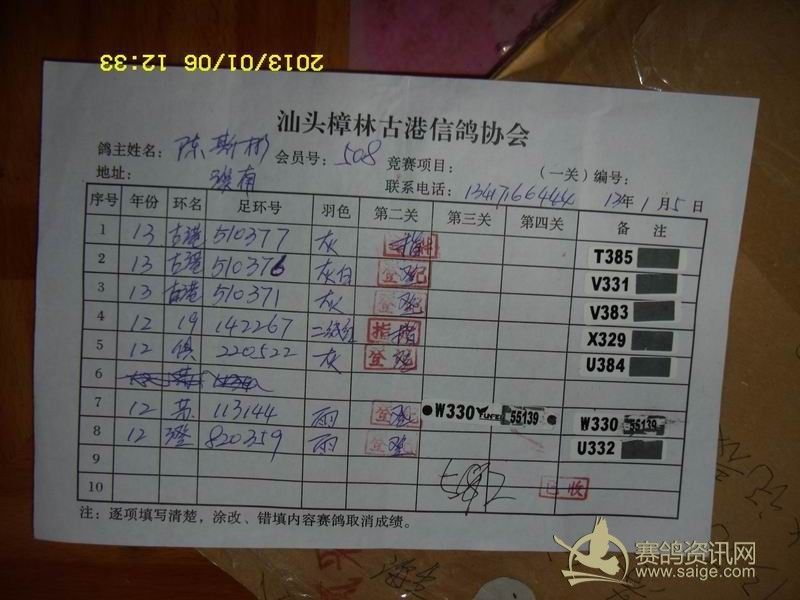 2013/01/06 12:33
汕头樟林古港信鸽协会
鸽主姓名： 陈斯彬 会员号：508 竞赛项目： （一关）编号：
地址： 联系电话： 13年1月5日
序号 年份 环名 足环号 羽色 第二关 第三关 第四关 备 注
1 13 古港 510377 灰 T385
2 13 古港 510376 灰白 登记 V331
3 13 古港 510371 灰 登记 V383
4 12 19 142267 二线红 指 X329
5 12 俱 220522 灰 登 U384
6
7 12 113144 雨 登 W330 55139 W330 55139
8 12 820359 雨 登 U332
9
10 已收
注：逐项填写清楚，涂改、错填内容赛鸽取消成绩。
赛鸽资讯网
www.saige.com